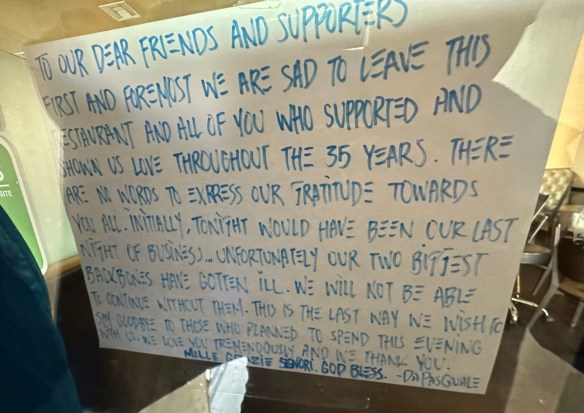 TO OUR DEAR FRIENDS AND SUPPORTERS
FIRST AND FOREMOST WE ARE SAD TO LEAVE THIS
RESTAURANT AND ALL OF YOU WHO SUPPORTED AND
SHOWN US LOVE THROUGHOUT THE 35 YEARS. THERE
ARE NO WORDS TO EXPRESS OUR GRATITUDE TOWARDS
YOU ALL. INITIALLY, TONIGHT WOULD HAVE BEEN OUR LAST
NIGHT OF BUSINESS... UNFORTUNATELY OUR TWO BIGGEST
BACKBONES HAVE GOTTEN ILL. WE WILL NOT BE ABLE
TO CONTINUE WITHOUT THEM. THIS IS THE LAST WAY WE WISH TO
SAY GOODBYE TO THOSE WHO PLANNED TO SPEND THIS EVENING
WITH US. WE LOVE YOU TREMENDOUSLY AND WE THANK YOU.
MILLE GRAZIE SIGNORI. GOD BLESS. -DA PASQUALE